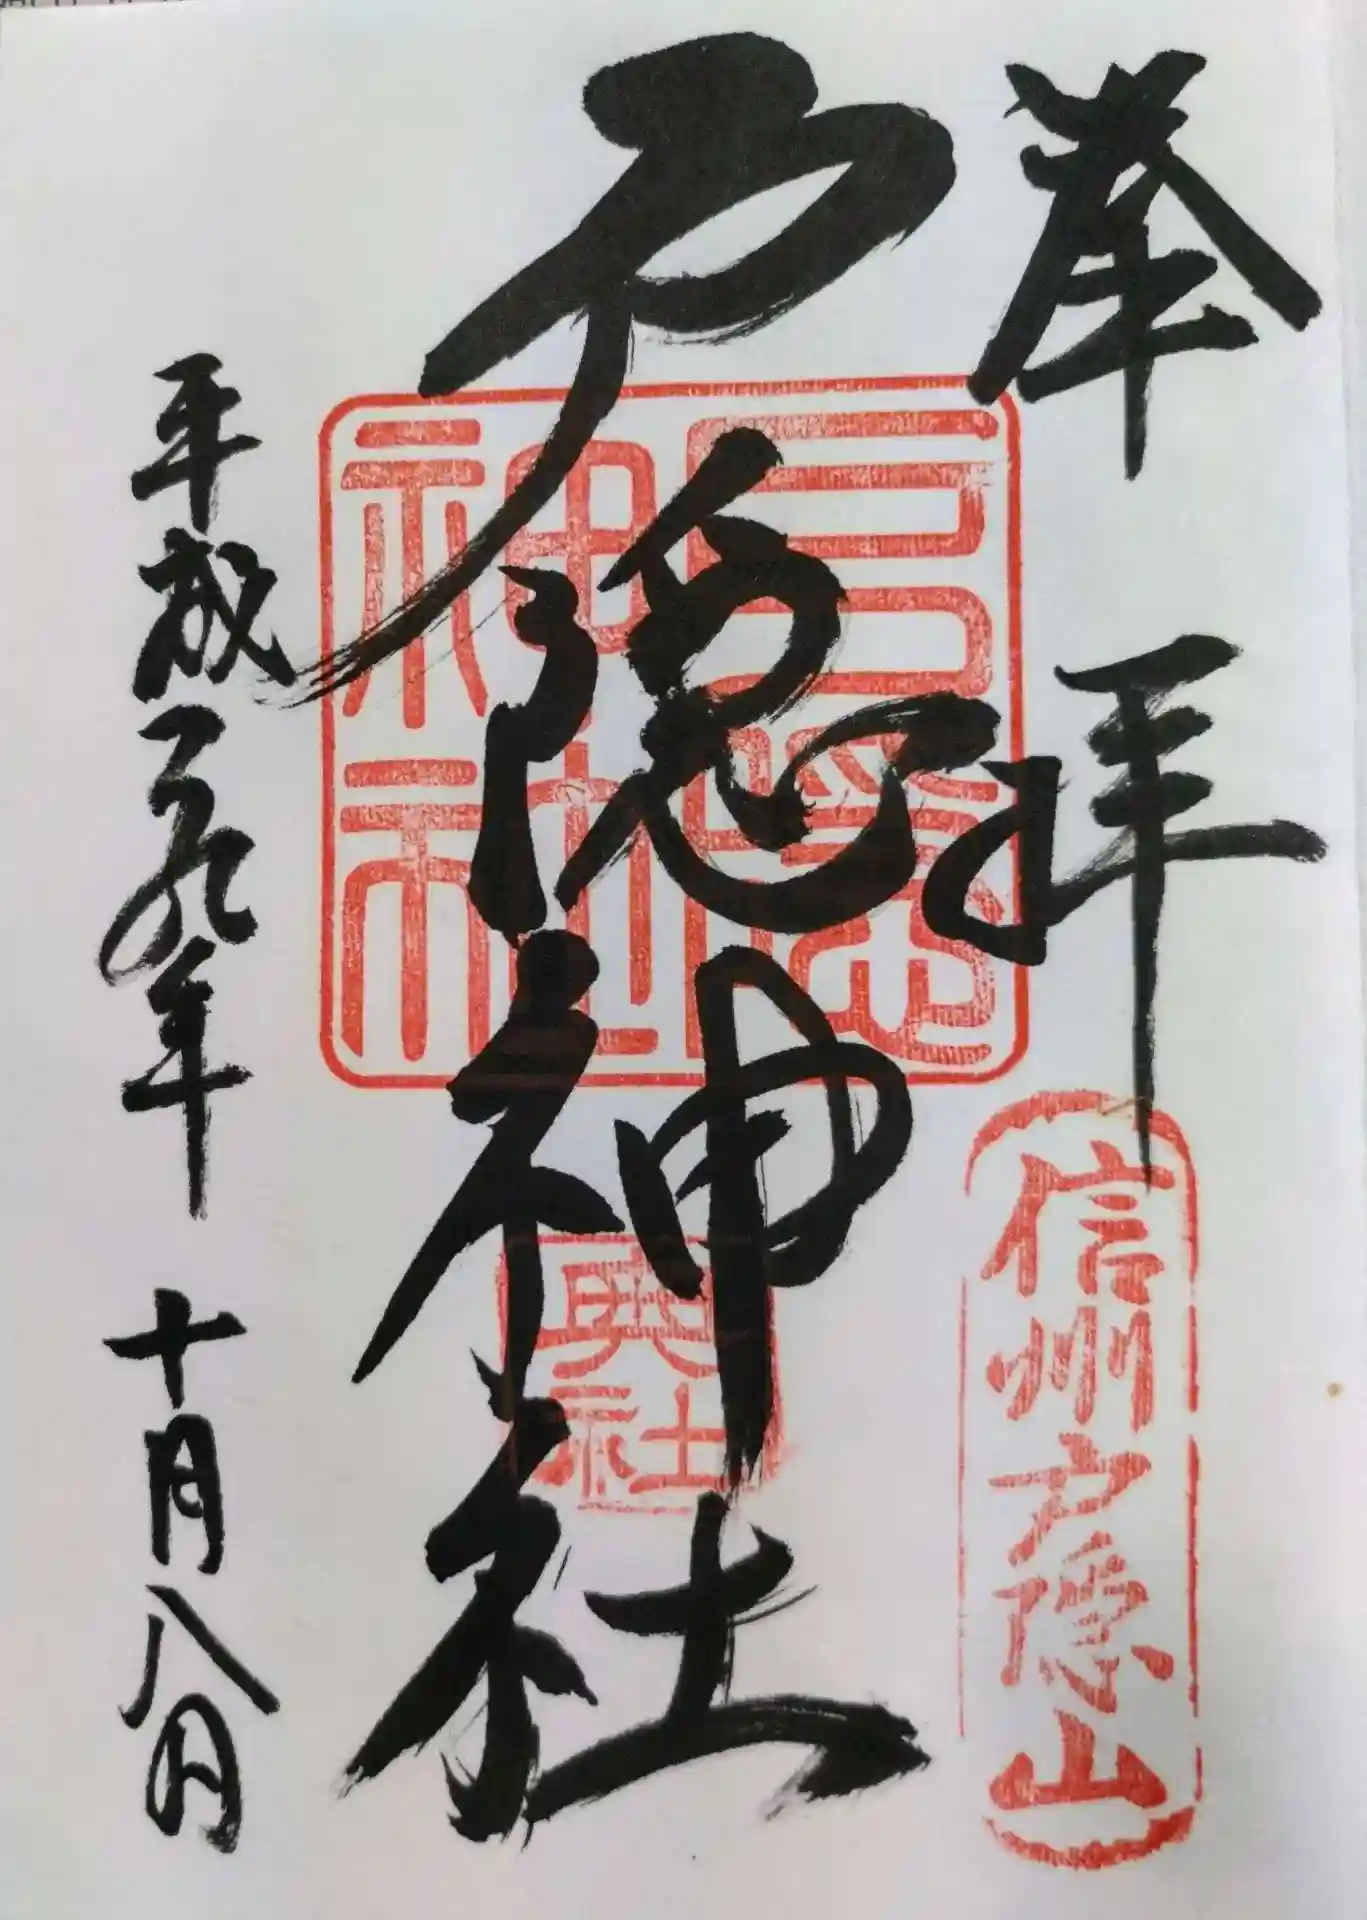 奉拝
信州戸隠山
戸隠神社
戸隠神社
奥社
平成二九年十月八日